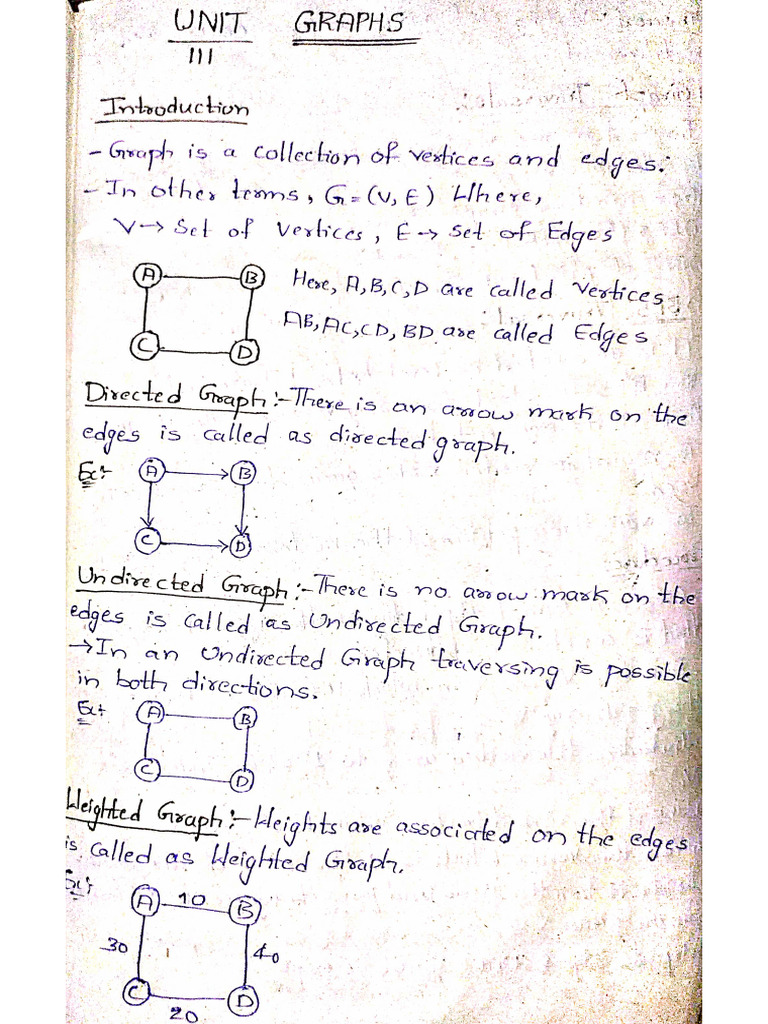 UNIT GRAPHS
III
Introduction
- Graph is a collection of vertices and edges.
- In other terms, G=(V,E) Where,
V→ Set of Vertices, E→ Set of Edges
A B
Here, A,B,C,D are called Vertices
AB,AC,CD,BD are called Edges
C D
Directed Graph:- There is an arrow mark on the
edges is called as directed graph.
Ex:- A B
C D
Undirected Graph:- There is no arrow mark on the
edges is called as Undirected Graph.
→In an Undirected Graph traversing is possible
in both directions.
Ex:- A B
C D
Weighted Graph:- Weights are associated on the edges
is called as Weighted Graph.
Ex:- A 10 B
30 40
C D
20